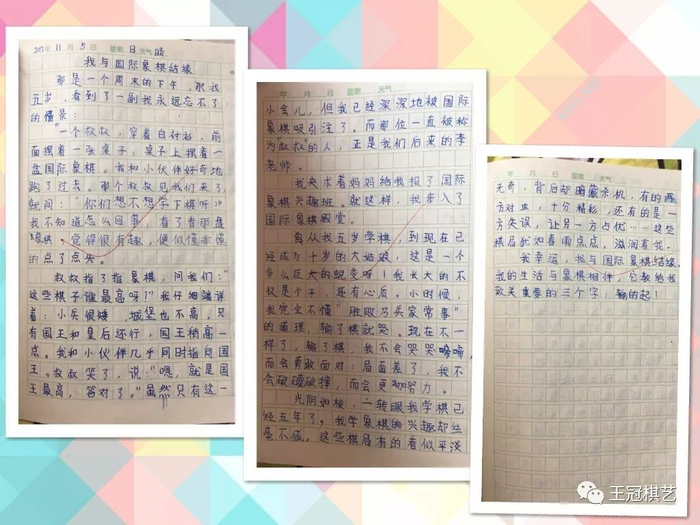 2017年11月5日 星期日 天气晴
我与国际象棋结缘
那是一个周末的下午，那我
五岁，看到了一副我永远忘不了
的情景：
一个叔叔，穿着白衬衫，前
面摆着一张桌子，桌子上摆着一
盘国际象棋。我和小伙伴好奇地
跑了过去。那个叔叔见我们来了，
就问：“你们想不想学下棋呀？”
我不知道怎么回事，看了看那盘
象棋，觉得很有趣，便似懂非懂
的点了点头。
叔叔指了指象棋，问我们：“
这些棋子谁最高呀？”我仔细端详
着：小兵很矮，城堡也不高，只
有国王和皇后还行，国王稍高一
点。我和小伙伴几乎同时指向国
王。叔叔笑了，说：“嗯，就是国
王最高，答对了。”虽然只有这一
年 月 日 星期 天气
小会儿，但我已经深深地被国际
象棋吸引住了。而那位一直被称
为“叔叔”的人，正是我们后来的李
老师。
我央求着妈妈给我报了国际
象棋兴趣班。就这样，我步入了
国际象棋殿堂。
自从我五岁学棋，到现在已
经成为十岁的大姑娘，这是一个
多么巨大的蜕变呀！我长大的不
仅是个子，还有心态。小时候，
我完全不懂“胜败乃兵家常事”
的道理，输了棋就哭。现在不一
样了，输了棋，我不会哭哭啼啼
而会勇敢面对；局面差了，我不
会破罐破摔，而会更加努力。
光阴如梭，一转眼我学棋已
经五年了，我学象棋的兴趣却丝
毫不减。这些棋局有的看似平淡
年 月 日 星期 天气
无奇，背后却暗藏杀机，有的
方对攻，十分精彩，还有的是一
方失误，让另一方占优……这些
棋局犹如春雨点点，滋润着我。
我幸运，我与国际象棋结缘。
我的生活与象棋相伴，它教给我
致关重要的三个字：输的起！
王冠棋艺